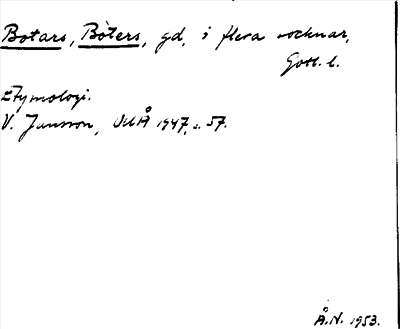 Botars, Böters, gd, i flera socknar,
Gotl. l.
Etymologi.
V. Jansson, VUÅ 1947, s. 57.
Å.N. 1953.